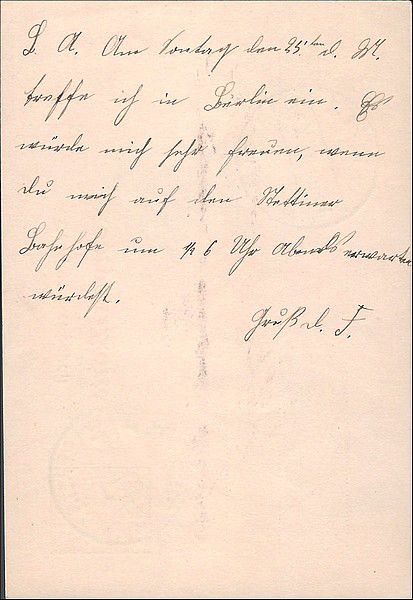 L. A. Am Sontag den 25ten d. M.
treffe ich in Berlin ein. Es
würde mich sehr freuen, wenn
du mich auf den Stettiner
Bahnhofe um ½ 6 Uhr Abends erwarten
würdest.
Gruß d. F.